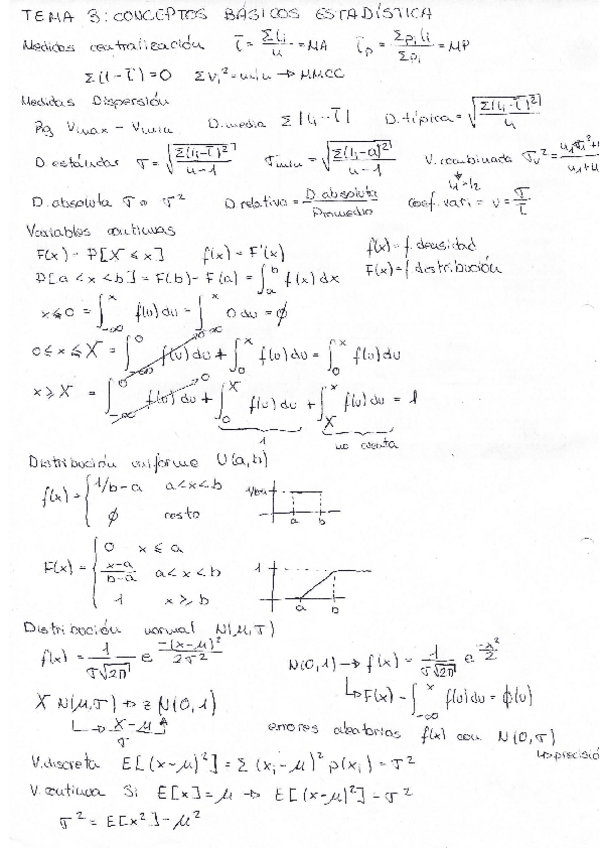 TEMA 3: CONCEPTOS BÁSICOS ESTADÍSTICA
Medidas centralización l̄ = Σli/n = MA l̄p = Σpi li/Σpi = MP
Σ(l - l̄) = 0 Σvi² = min → MMCC
Medidas Dispersión
Rg Vmax - Vmin D. media Σ|li - l̄| D. típica = √(Σ(li - l̄)²/n)
D. estándar σ = √(Σ(li - l̄)²/n-1) σmin = √(Σ(li - a)²/n-1) V. combinada σv² =
D. absoluta σ o σ² D relativa = D absoluta/Promedio coef. vari = v = σ/l̄
Variables continuas
F(x) = P[X ≤ x] f(x) = F'(x) f(x) = f. densidad
P[a < x < b] = F(b) - F(a) = ∫_a^b f(x) dx F(x) = f distribución
x ≤ 0 = ∫_-∞^x f(u) du = ∫_-∞^x 0 du = ∅
0 ≤ x ≤ X = ∫_-∞^0 f(u) du + ∫_0^x f(u) du = ∫_0^x f(u) du
x ≥ X = ∫_-∞^0 f(u) du + ∫_0^X f(u) du + ∫_X^x f(u) du = 1
1 no cuenta
Distribución uniforme U(a,b)
f(x) = { 1/b-a a < x < b
∅ resto
a b
F(x) = { 0 x ≤ a
x-a/b-a a < x < b
1 x ≥ b
1 a b
Distribución normal N(μ,σ)
f(x) = 1/σ√2π e^(-(x-μ)²/2σ²) N(0,1) → f(x) = 1/σ√2π e^(-x²/2)
↳ F(x) = ∫_-∞^x f(u) du = ϕ(u)
X N(μ,σ) → z N(0,1)
↳ X-μ/σ errores aleatorios f(x) con N(0,σ)
↳ precisió
V. discreta E[(x-μ)²] = Σ(xi-μ)² p(xi) = σ²
V. continua Si E[x] = μ → E[(x-μ)²] = σ²
σ² = E[x²] - μ²